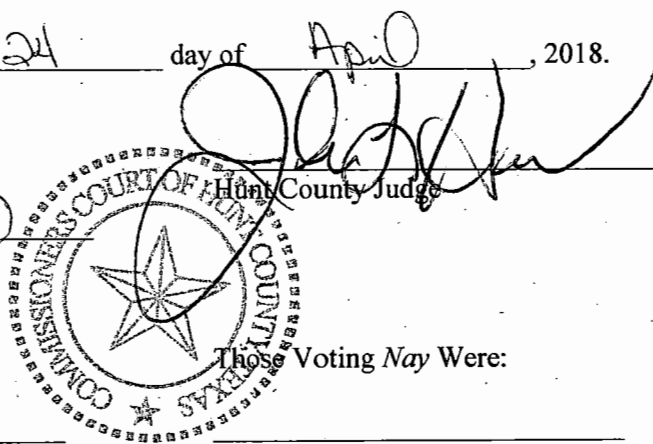 24 day of April, 2018.
Hunt County Judge
COMMISSIONERS COURT OF HUNT COUNTY, TEXAS
Those Voting Nay Were: